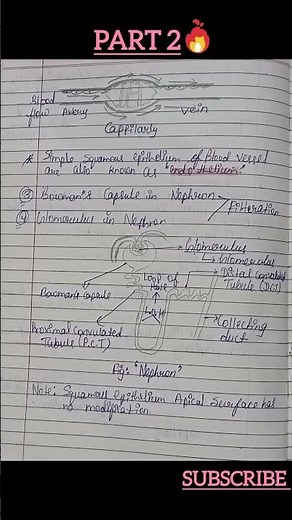 PART 2🔥
Blood
flow Artery
vein
Cappilarly
* Simple squamous epithelium of Blood vessel
are also known as "endothelium"
③ Bowman's Capsule in Nephron
Filteration
④ Glomerulus in Nephron
Glomerulus
Glomerulus
Loop of
Henle
Distal Convoluted
Tubule (DCT)
Bowmans capsule
LOH
Proximal Convulated
Tubule (P.C.T)
Collecting
duct
Fig: "Nephron"
Note: Squamous epithelium Apical surface has
no modification
SUBSCRIBE